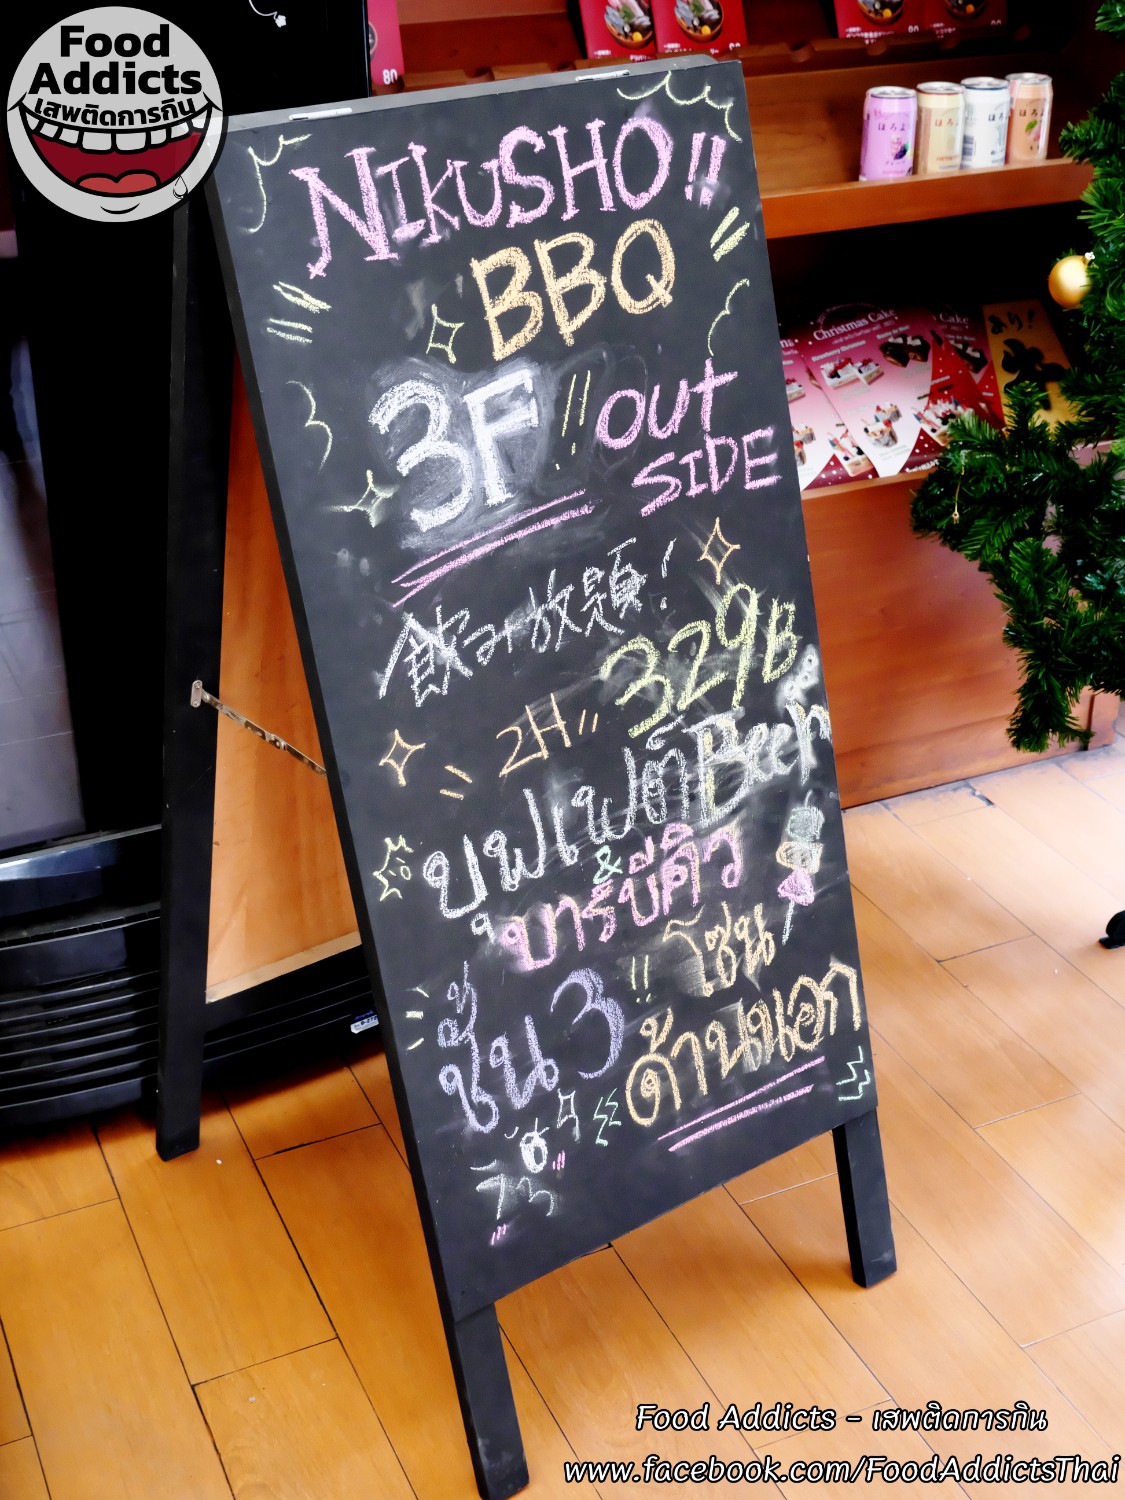 Food
Addicts
เสพติดการกิน
NIKUSHO!!
BBQ
3F!! OUT
SIDE
飲み放題!
2H 329B
บุฟเฟต์Beer
&
บาร์บีคิว
ชั้น 3!! โซน
ด้านนอก
80
80
ほろよ
ほろよ
ほろよ
Christmas Cake
あり!
Food Addicts - เสพติดการกิน
www.facebook.com/FoodAddictsThai